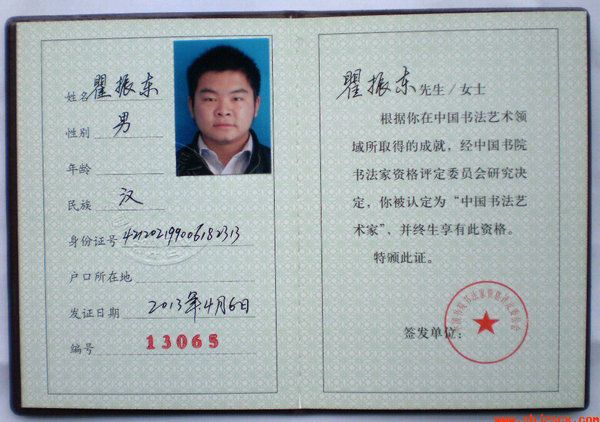 姓名 瞿振东
性别 男
年龄
民族 汉
身份证号 421202199006182313
户口所在地
发证日期 2013年4月6日
编号 13065
瞿振东先生/女士
根据你在中国书法艺术领
域所取得的成就，经中国书院
书法家资格评定委员会研究决
定，你被认定为“中国书法艺
术家”，并终生享有此资格。
特颁此证。
签发单位：